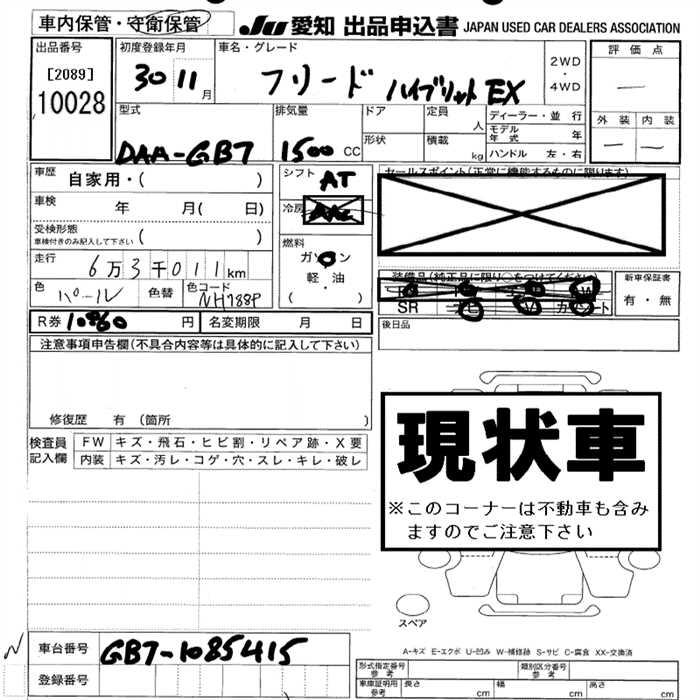 車内保管・守衛保管
JU 愛知 出品申込書 JAPAN USED CAR DEALERS ASSOCIATION
出品番号
[2089]
10028
初度登録年月
30 11月
車名・グレード
フリード ハイブリット EX
2WD
・
4WD
評価点
―
外装 内装
― ―
型式
DAA-GB7
排気量
1500 CC
ドア
定員
人
形状
積載
kg
ディーラー・並行
モデル年式 年
ハンドル 左・右
車歴
自家用・( )
車検
年 月( 日)
受検形態
車検付きのみ記入して下さい ( )
走行
6万3千011km
色
パール
色替
色コード
NH788P
シフト
AT
冷房
燃料
ガソリン
軽・油
( )
セールスポイント(正常に機能するものに限ります)
装備品(純正品に限り○をつけてください)
SR
新車保証書
有・無
後日品
R券 10860 円
名変期限 月 日
注意事項申告欄(不具合内容等は具体的に記入して下さい)
修復歴 有 (箇所 )
検査員記入欄
FW キズ・飛石・ヒビ割・リペア跡・X要
内装 キズ・汚レ・コゲ・穴・スレ・キレ・破レ
現状車
※このコーナーは不動車も含み
ますのでご注意下さい
スペア
A-キズ E-エクボ U-凹み W-補修跡 S-サビ C-腐食 XX-交換済
車台番号
GB7-1085415
登録番号
形式指定番号
参考
類別区分番号
参考
車庫証明用
参考
長さ cm
幅 cm
高さ cm